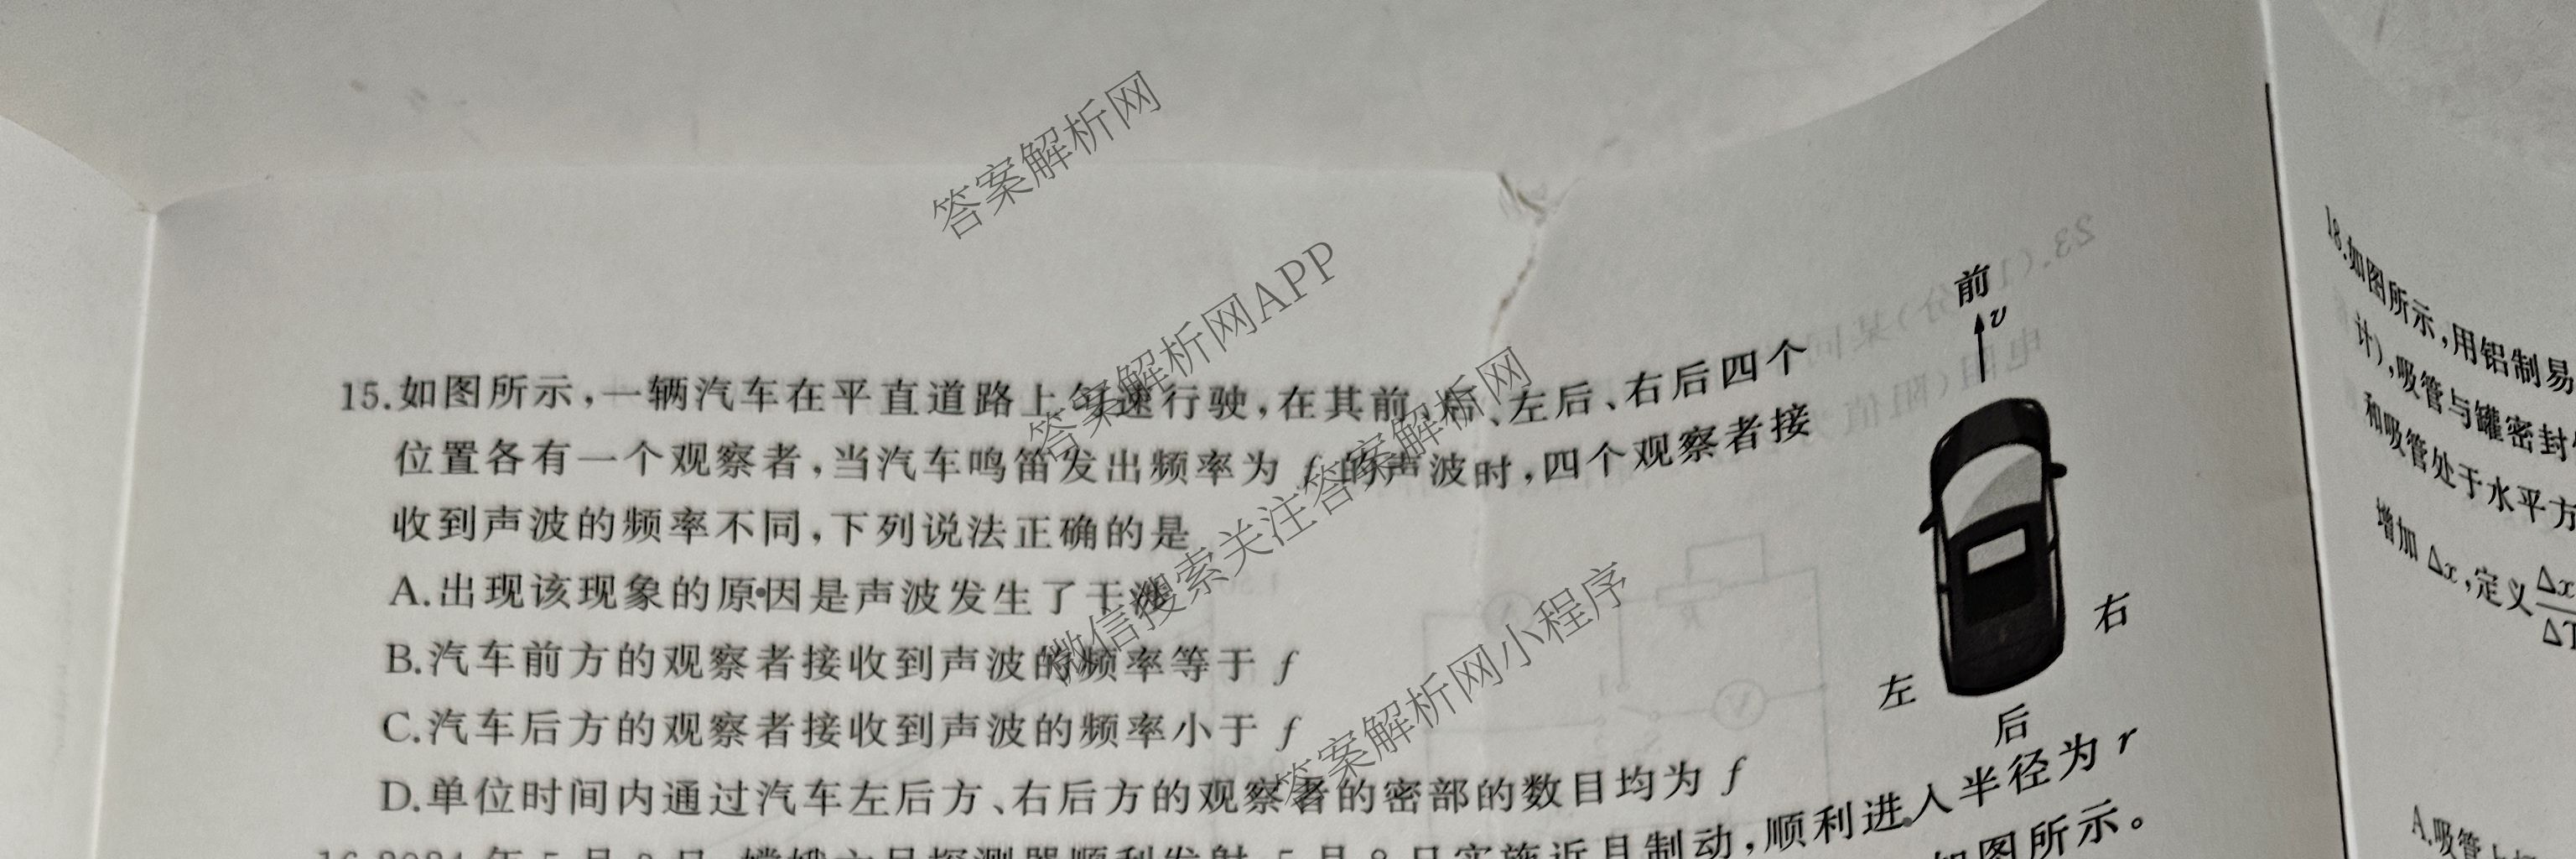 答案解析网
答案解析网APP
微信搜索关注答案解析网
答案解析网小程序
15.如图所示,一辆汽车在平直道路上匀速行驶,在其前、后、左后、右后四个
位置各有一个观察者,当汽车鸣笛发出频率为 f 的声波时,四个观察者接
收到声波的频率不同,下列说法正确的是
A.出现该现象的原因是声波发生了干涉
B.汽车前方的观察者接收到声波的频率等于 f
C.汽车后方的观察者接收到声波的频率小于 f
D.单位时间内通过汽车左后方、右后方的观察者的密部的数目均为 f
前
v
左
右
后
顺利进入半径为 r
如图所示。
18.如图所示,用铝制易
计),吸管与罐密封
和吸管处于水平方
增加 Δx,定义 Δx
A.吸管上